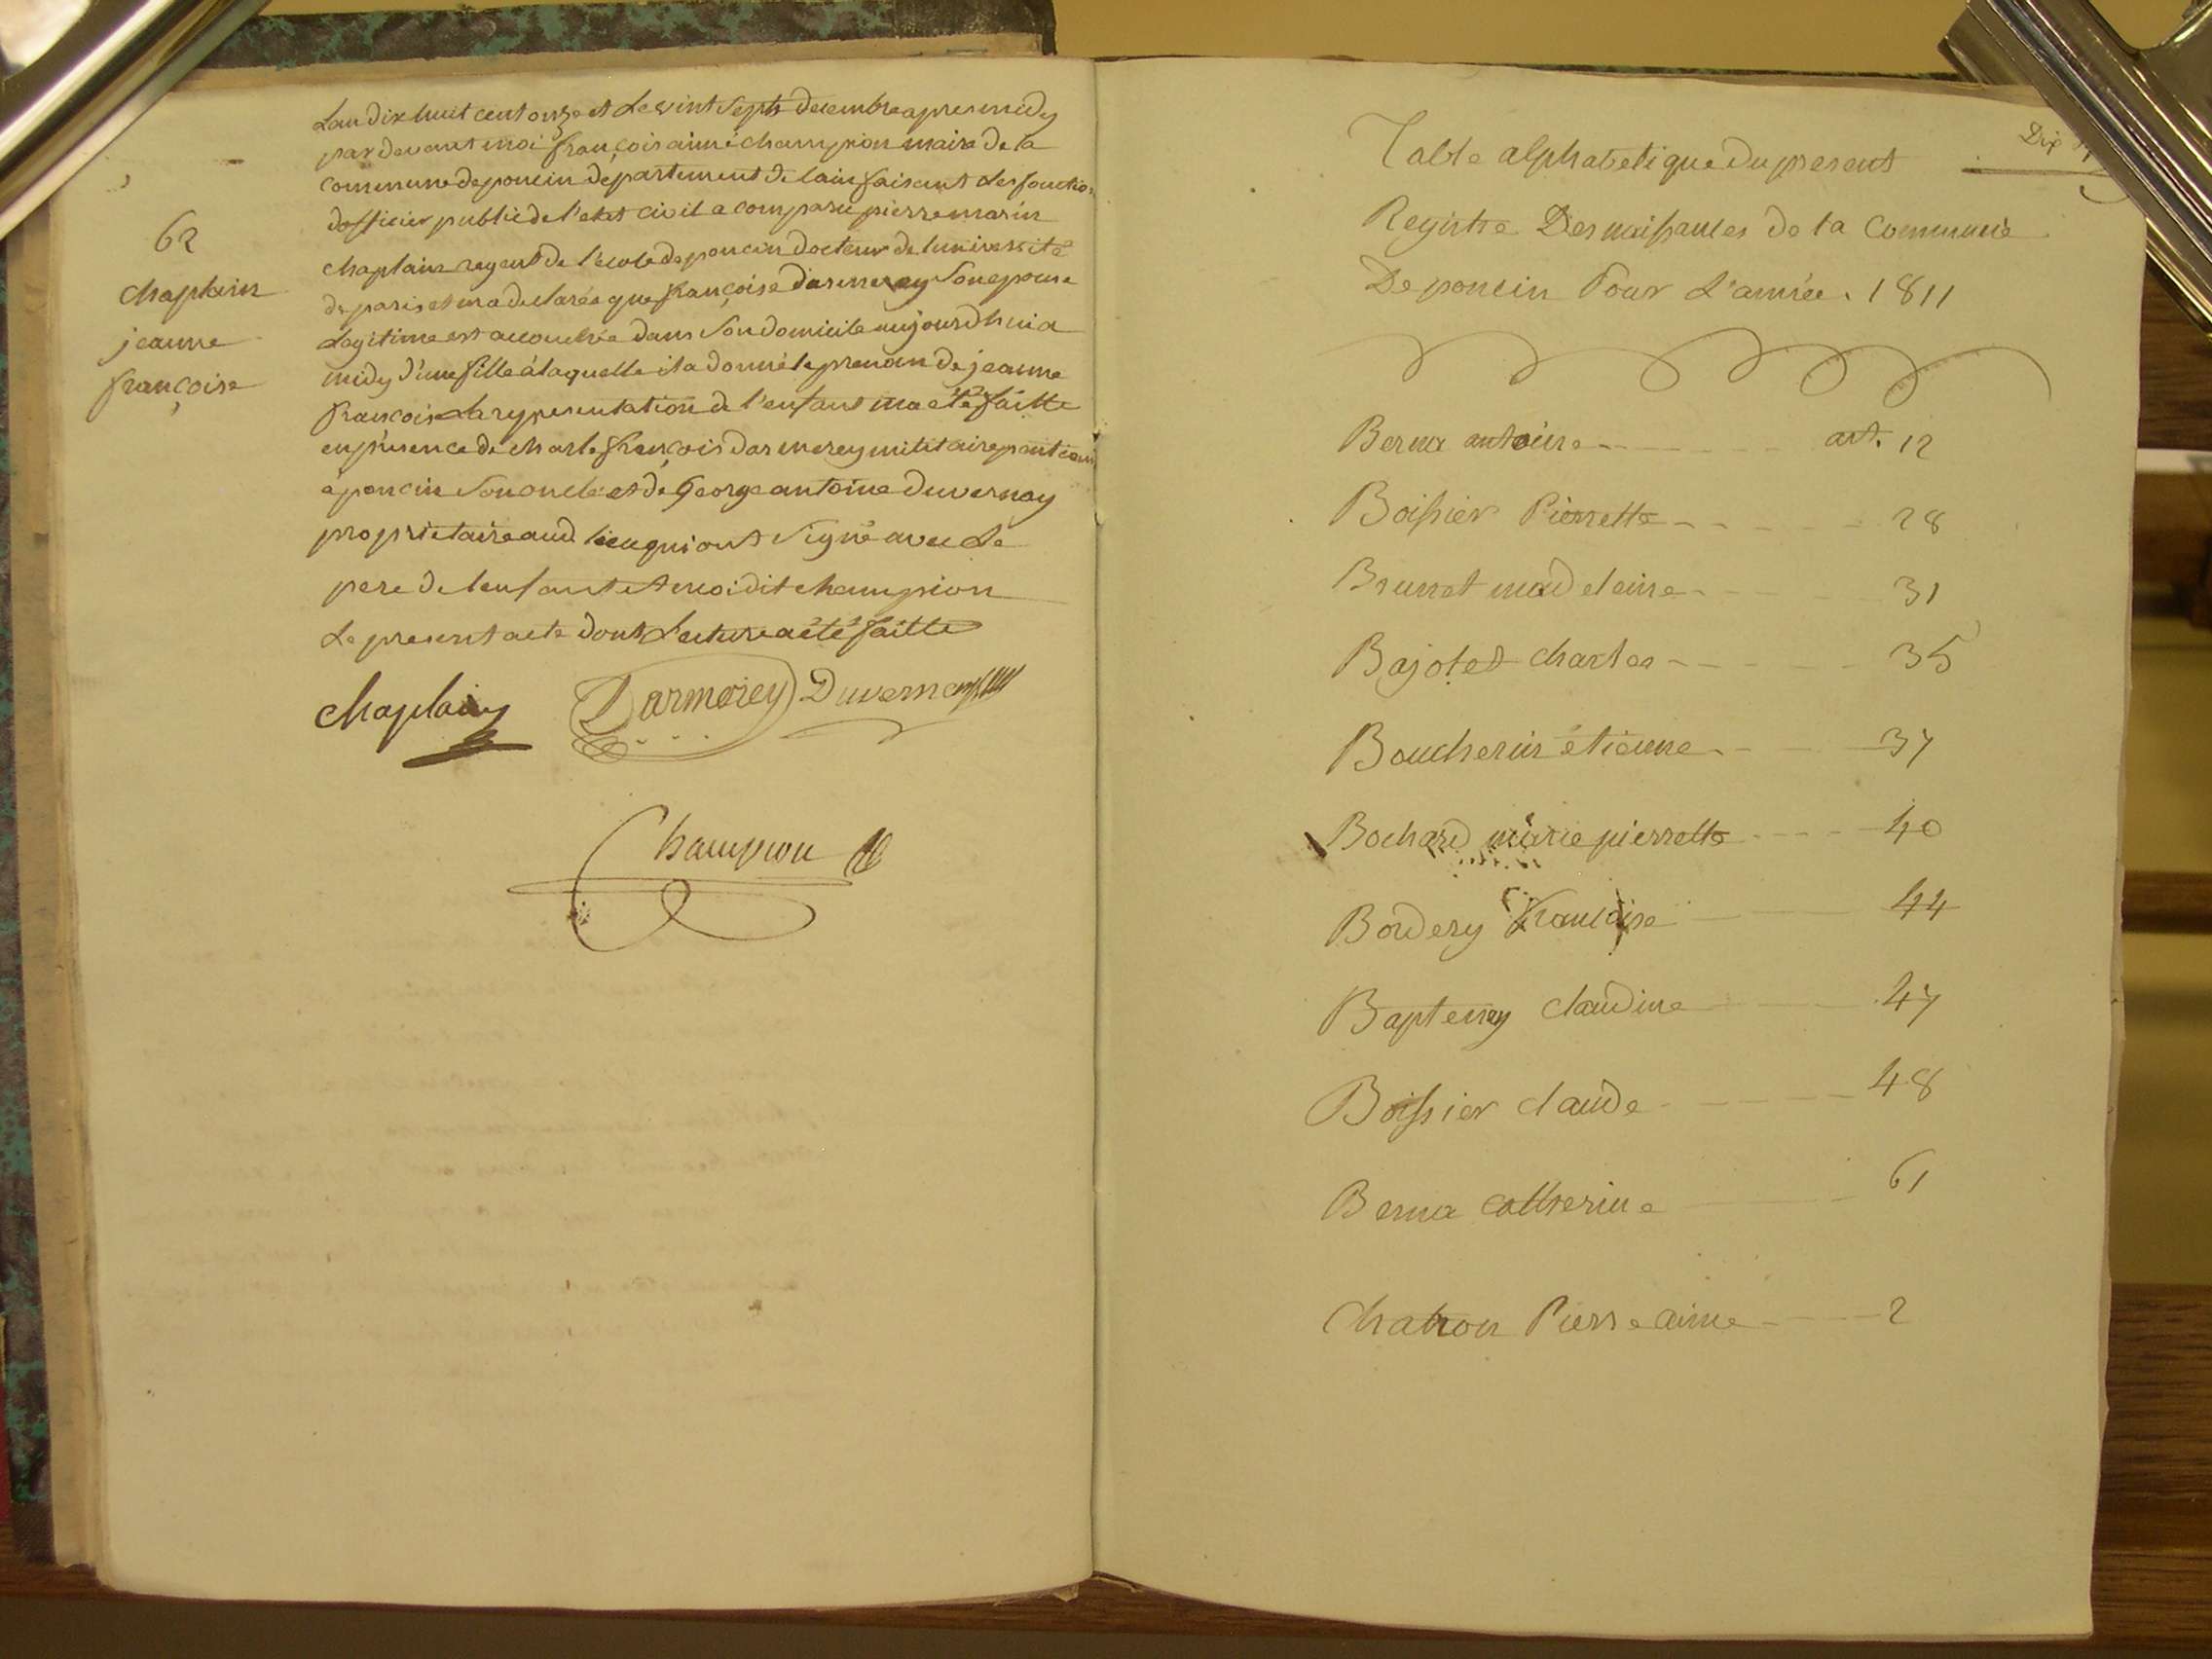 62
chaplain
jeanne
françoise
Lan dix huit cent onze et le vint sept decembre apres midy
par devant moi françois aimé champion maire de la
commune de poncin departement de lain faisant les fonction
dofficier public de l'etat civil a comparu pierre marin
chaplain regent de l'école de poncin docteur de luniversité
de paris et ma declarée que françoise darmerey son epouse
legitime est accouchée dans son domicile aujourdhui a
midy d'une fille á laquelle il a donné le prenom de jeanne
françoise la representation de l'enfant ma été faitte
en présence de charle françois darmerey militaire
a poncin son oncle et de George antoine Duvernay
proprietaire aud lieu qui ont signé avec le
pere de lenfant et moi dit champion
le present acte dont lecture a été faitte
chaplain Darmerey Duvernay
Champion
Dix
Table alphabetique du present
Registre Des naissances de la Commune
De poncin Pour L'année. 1811
Berna antoine art. 12
Boissier Pierrette 28
Brunet madelaine 31
Bajolet charles 35
Boucherin étienne 37
Bochard marie pierrette 40
Bordery françoise 44
Baptenay claudine 47
Boissier claude 48
Berna catherine 61
Chatron Pierre aimé 2